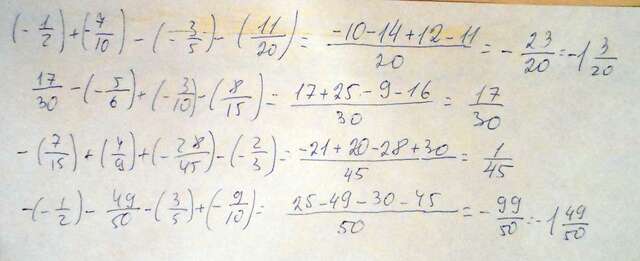 (-1/2)+(-7/10)-(-3/5)-(11/20)= -10-14+12-11/20 = -23/20 = -1 3/20
17/30-(-5/6)+(-3/10)-(8/15)= 17+25-9-16/30 = 17/30
-(7/15)+(4/9)+(-28/45)-(-2/3)= -21+20-28+30/45 = 1/45
-(-1/2)-49/50-(3/5)+(-9/10)= 25-49-30-45/50 = -99/50 = -1 49/50